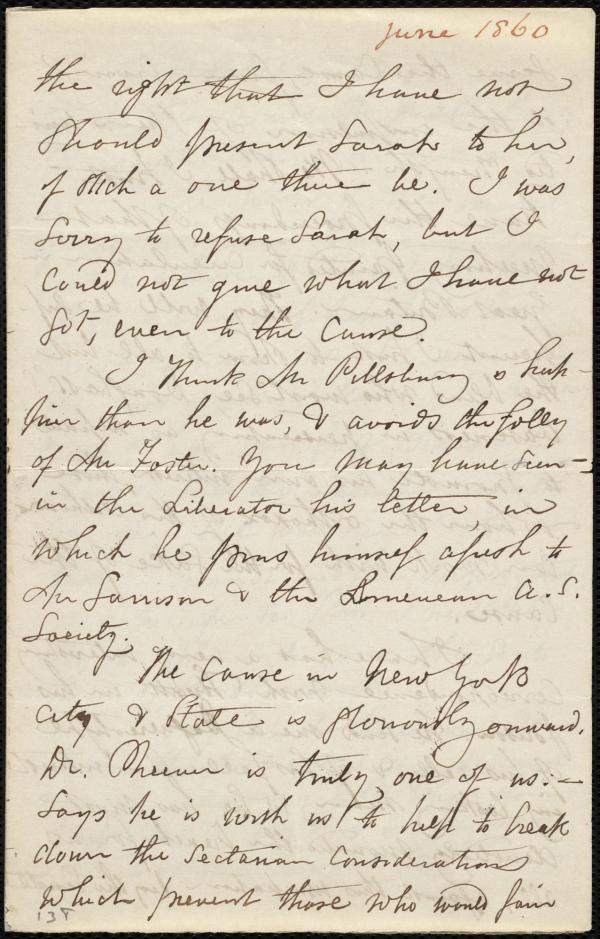 June 1860
the right that I have not,
should present Sarah to her,
if such a one there be. I was
sorry to refuse Sarah, but I
could not give what I have not
got, even to the Cause.
I think Mr Pillsbury is hap-
pier than he was, & avoids the folly
of Mr Foster. You may have seen
in the Liberator his letter, in
which he pins himself afresh to
Mr Garrison & the American A. S.
Society.
The Cause in New York
City & State is gloriously onward.
Dr. Cheever is truly one of us:—
says he is with us to help to break
down the sectarian considerations
which prevent those who would fain